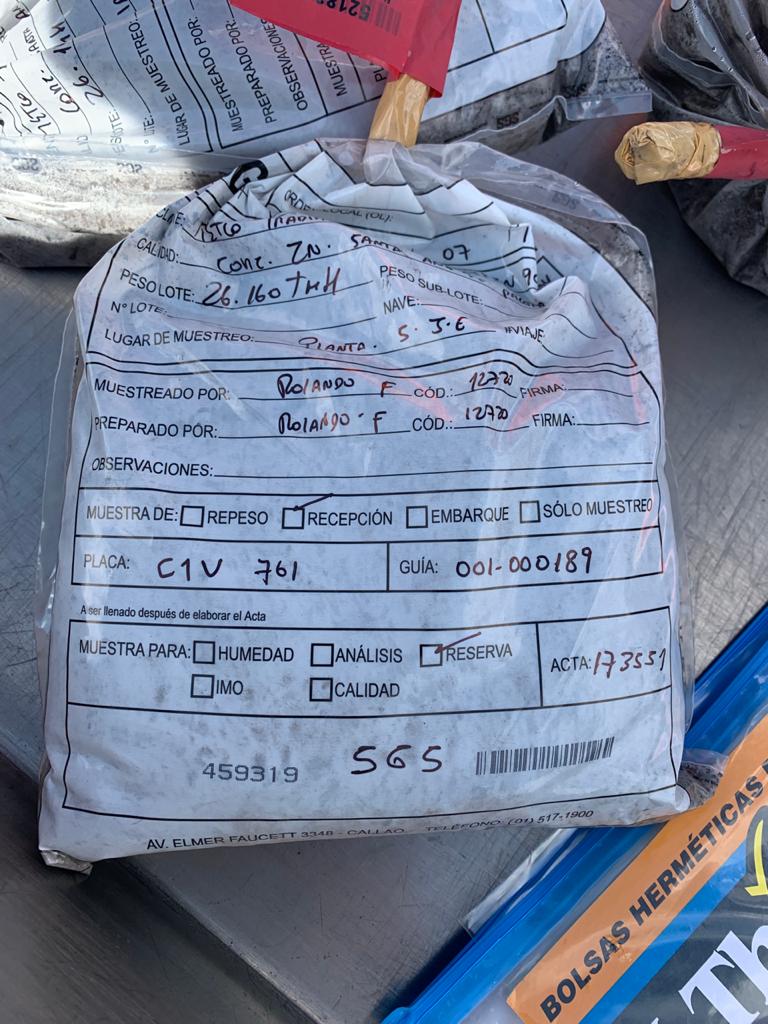 52182
LUGAR DE MUESTREO:
MUESTREADO POR:
PREPARADO POR:
OBSERVACIONES
MUESTRA
26.14
Conc.
ORDEN LOCAL (OL):
CALIDAD: Conc. ZN. SANTA 07
PESO LOTE: 26.160 TMH PESO SUB-LOTE:
N° LOTE: NAVE: #VIAJE:
LUGAR DE MUESTREO: PLANTA. S. J. E
MUESTREADO POR: ROLANDO F CÓD.: 12720 FIRMA:
PREPARADO POR: ROLANDO F CÓD.: 12720 FIRMA:
OBSERVACIONES:
MUESTRA DE: REPESO RECEPCIÓN EMBARQUE SÓLO MUESTREO
PLACA: C1V 761 GUÍA: 001-000189
A ser llenado después de elaborar el Acta
MUESTRA PARA: HUMEDAD ANÁLISIS RESERVA ACTA: 173551
IMO CALIDAD
459319 565
AV. ELMER FAUCETT 3348 - CALLAO TELÉFONO: (01) 517-1900
BOLSAS HERMÉTICAS
Th